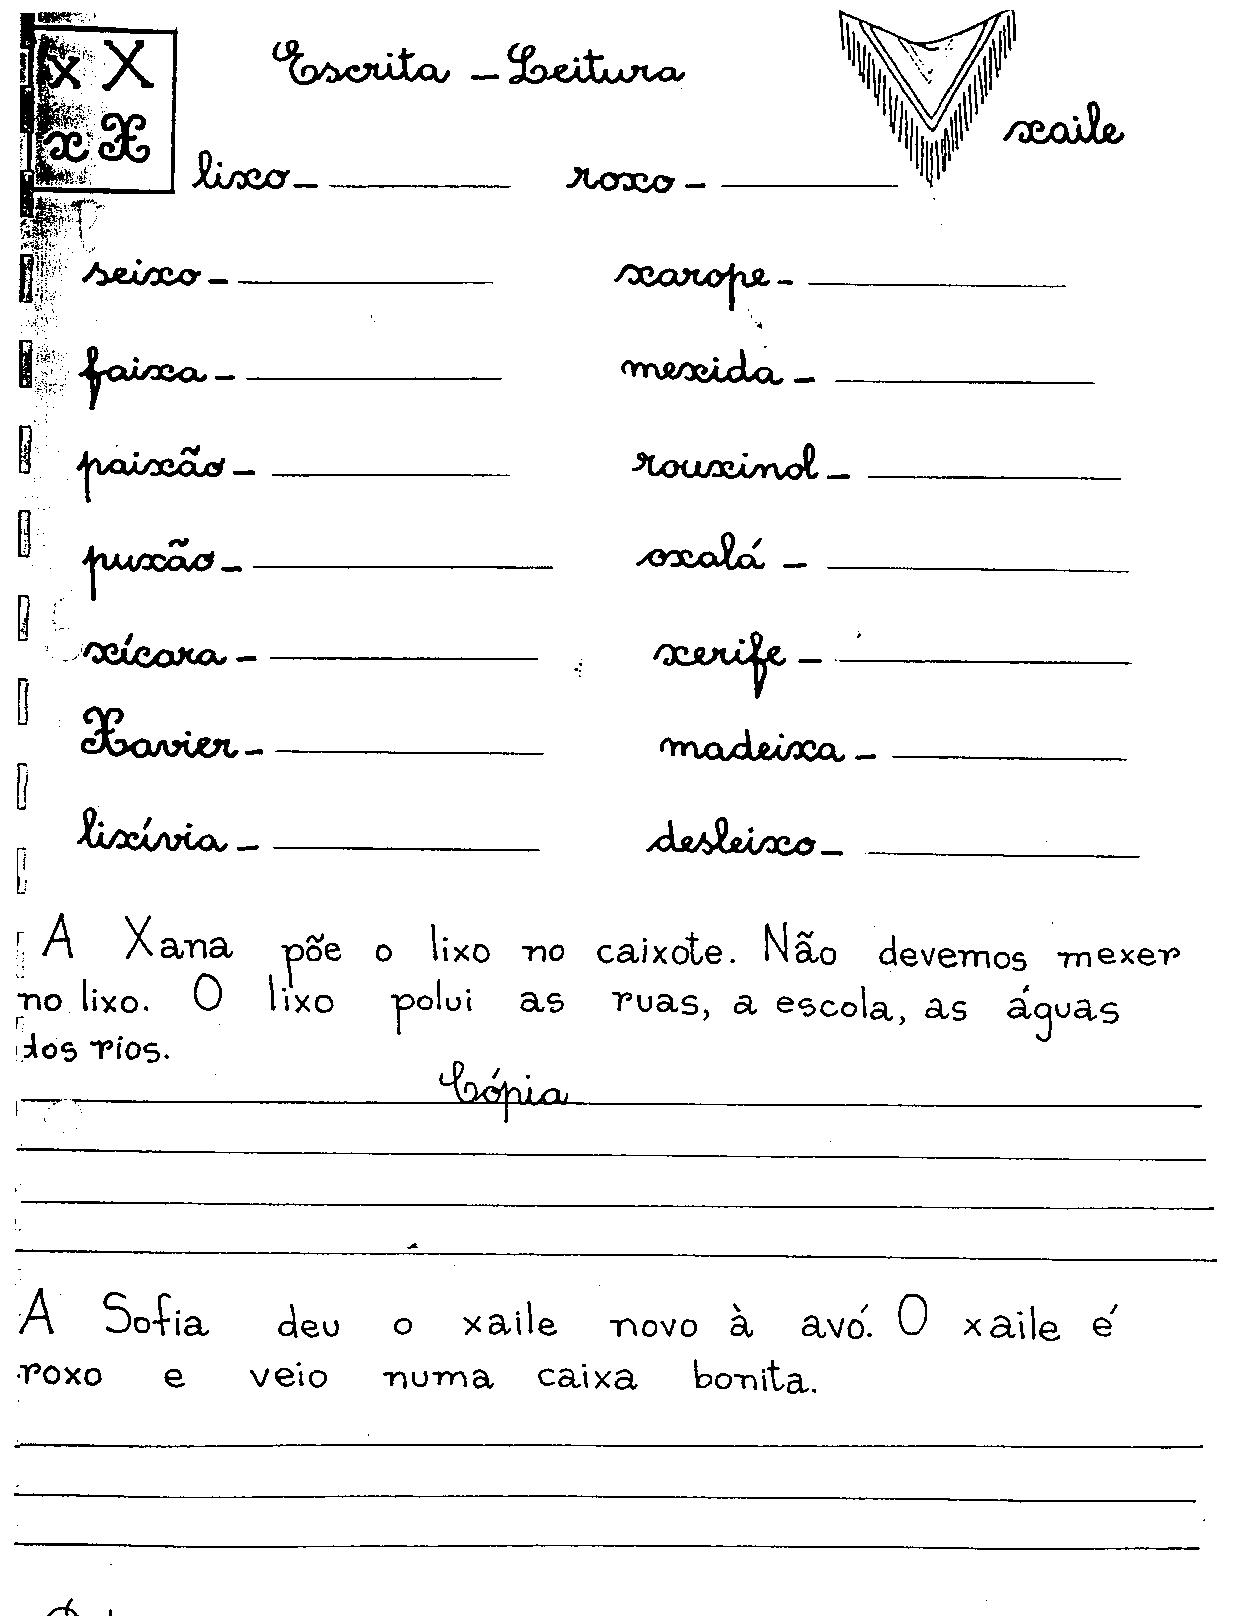 x X
x X
Escrita - Leitura
xaile
lixo - roxo -
seixo - xarope -
faixa - mexida -
paixão - rouxinol -
puxão - oxalá -
xícara - xerife -
Xavier - madeixa -
lixívia - desleixo -
A Xana põe o lixo no caixote. Não devemos mexer
no lixo. O lixo polui as ruas, a escola, as águas
dos rios.
Cópia
A Sofia deu o xaile novo à avó. O xaile é
roxo e veio numa caixa bonita.